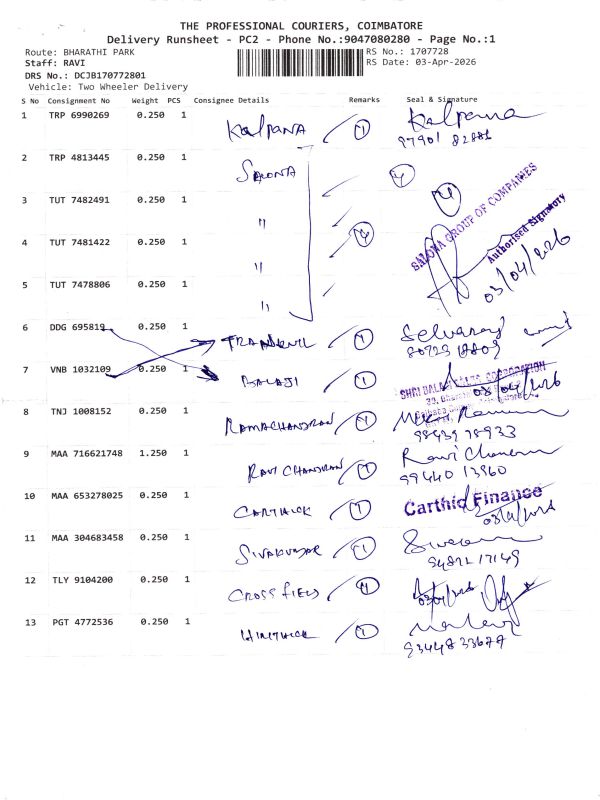 THE PROFESSIONAL COURIERS, COIMBATORE
Delivery Runsheet - PC2 - Phone No.:9047080280 - Page No.:1
Route: BHARATHI PARK RS No.: 1707728
Staff: RAVI RS Date: 03-Apr-2026
DRS No.: DCJB170772801
Vehicle: Two Wheeler Delivery
S No Consignment No Weight PCS Consignee Details Remarks Seal & Signature
1 TRP 6990269 0.250 1 KALPANA 1 Kalpana
97901 82881
2 TRP 4813445 0.250 1 SALONA 4 4
3 TUT 7482491 0.250 1 " SALONA GROUP OF COMPANIES
4 TUT 7481422 0.250 1 " 4 Authorised Signatory
5 TUT 7478806 0.250 1 " 03/04/2026
6 DDG 695819 0.250 1 1 Selvaraj
7 VNB 1032109 0.250 1 BALAJI 1 03/04/2026
8 TNJ 1008152 0.250 1 RAMACHANDRAN 1
98939 78933
9 MAA 716621748 1.250 1 RAVI CHANDRAN 1 Ravi Chandran
99440 13960
10 MAA 653278025 0.250 1 CARTHICK 1 Carthic Finance
11 MAA 304683458 0.250 1 SIVAKUMAR 1
12 TLY 9104200 0.250 1 CROSS FIELD 1
13 PGT 4772536 0.250 1 1
93448 33677